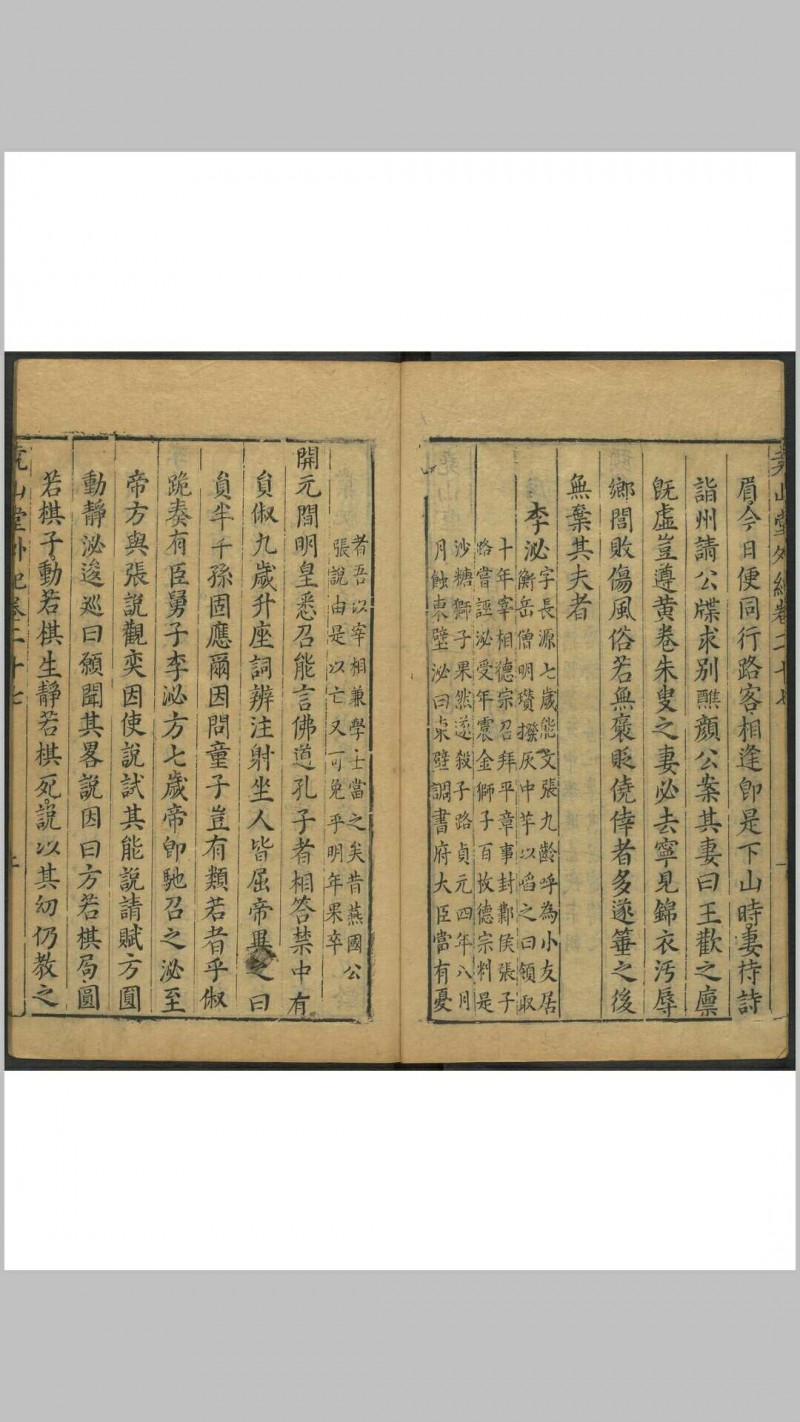 堯山堂外紀卷二十七
眉今日便同行路客相逢即是下山時妻持詩
詣州請公牒求別醮顏公案其妻曰王歡之廩
旣虛豈遵黃卷朱叟之妻必去寧見錦衣汚辱
鄉閭敗傷風俗若無褒貶僥倖者多遂箠之後
無棄其夫者
李泌
字長源七歲能文張九齡呼為小友居
衡岳僧明瓚撥灰中芋以㗖之曰領取
十年宰相德宗召拜平章事封鄴侯張子
路嘗誣泌受年震金獅子百枚德宗料是
沙糖獅子果然遂殺子路貞元四年八月
月蝕東壁泌曰東壁謂書府大臣當有憂
者吾以宰相兼學士當之矣昔燕國公
張說由是以亡又可免乎明年果卒
開元間明皇悉召能言佛道孔子者相答禁中有
貟俶九歲升座詞辨注射坐人皆屈帝異之曰
貟半千孫固應爾因問童子豈有類若者乎俶
跪奏有臣舅子李泌方七歲帝卽馳召之泌至
帝方與張說觀奕因使說試其能說請賦方圓
動靜泌逡巡曰願聞其畧說因曰方若棋局圓
若棋子動若棋生靜若棋死說以其幼仍教之
堯山堂外紀卷二十七